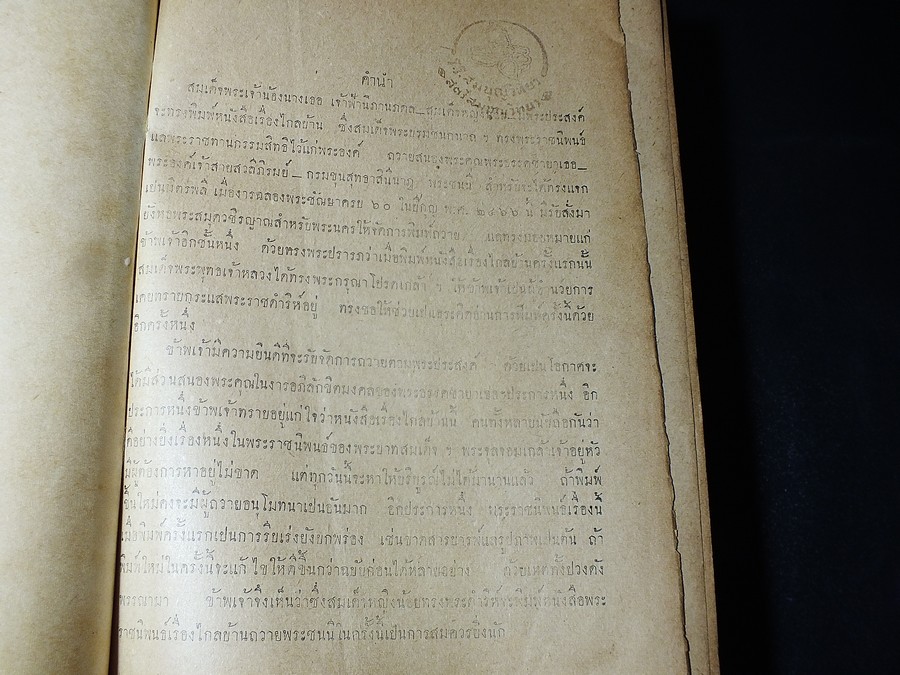 คำนำ
สมเด็จพระเจ้าน้องนางเธอ เจ้าฟ้านิภานภดล สมเด็จหญิงน้อย พระประสงค์
จะทรงพิมพ์หนังสือเรื่องไกลบ้าน ซึ่งสมเด็จพระบรมชนกนาถ ฯ ทรงพระราชนิพนธ์
แลพระราชทานกรรมสิทธิไว้แก่พระองค์ ถวายสนองพระคุณพระอรรคชายาเธอ
พระองค์เจ้าสายสวลีภิรมย์ กรมขุนสุทธาสินีนาฏ พระชนนี สำหรับจะได้ทรงแจก
เปนมิตรพลี เมื่องารฉลองพระชัณษาครบ ๖๐ ในปีกุญ พ.ศ. ๒๔๖๖ นี้ มีรับสั่งมา
ยังหอพระสมุดวชิรญาณสำหรับพระนครให้จัดการพิมพ์ถวาย แลทรงมอบหมายแก่
ข้าพเจ้าอีกชั้นหนึ่ง ด้วยทรงพระปรารภว่าเมื่อพิมพ์หนังสือเรื่องไกลบ้านครั้งแรกนั้น
สมเด็จพระพุทธเจ้าหลวงได้ทรงพระกรุณาโปรดเกล้า ฯ ให้ข้าพเจ้าเปนผู้อำนวยการ
เคยทราบกระแสพระราชดำริห์อยู่ ทรงขอให้ช่วยเปนธุระในการพิมพ์ครั้งนี้ด้วย
อีกครั้งหนึ่ง
ข้าพเจ้ามีความยินดีที่จะรับจัดการถวายตามพระประสงค์ ด้วยเปนโอกาศจะ
ได้มีส่วนสนองพระคุณในงารอภิลักขิตมงคลของพระอรรคชายาเธอประการหนึ่ง อีก
ประการหนึ่งข้าพเจ้าทราบอยู่แก่ใจว่าหนังสือเรื่องไกลบ้านนี้ คนทั้งหลายนับถือกันว่า
ดีอย่างยิ่งเรื่องหนึ่งในพระราชนิพนธ์ของพระบาทสมเด็จ ฯ พระจุลจอมเกล้าเจ้าอยู่หัว
มีผู้ต้องการหาอยู่ไม่ขาด แต่ทุกวันนี้จะหาให้บริบูรณ์ไม่ได้มานานแล้ว ถ้าพิมพ์
ขึ้นใหม่คงจะมีผู้ถวายอนุโมทนาเปนอันมาก อีกประการหนึ่ง พระราชนิพนธ์เรื่องนี้
เมื่อพิมพ์ครั้งแรกเปนการรีบเร่งยังบกพร่อง เช่นขาดสารบารพ์แลรูปภาพเปนต้น ถ้า
พิมพ์ใหม่ในครั้งนี้จะแก้ไขให้ดีขึ้นกว่าฉบับก่อนได้หลายอย่าง ด้วยเหตุทั้งปวงดัง
พรรณามา ข้าพเจ้าจึงเห็นว่าซึ่งสมเด็จหญิงน้อยทรงพระดำริห์จะพิมพ์หนังสือพระ
ราชนิพนธ์เรื่องไกลบ้านถวายพระชนนีในครั้งนี้เปนการสมควรยิ่งนัก